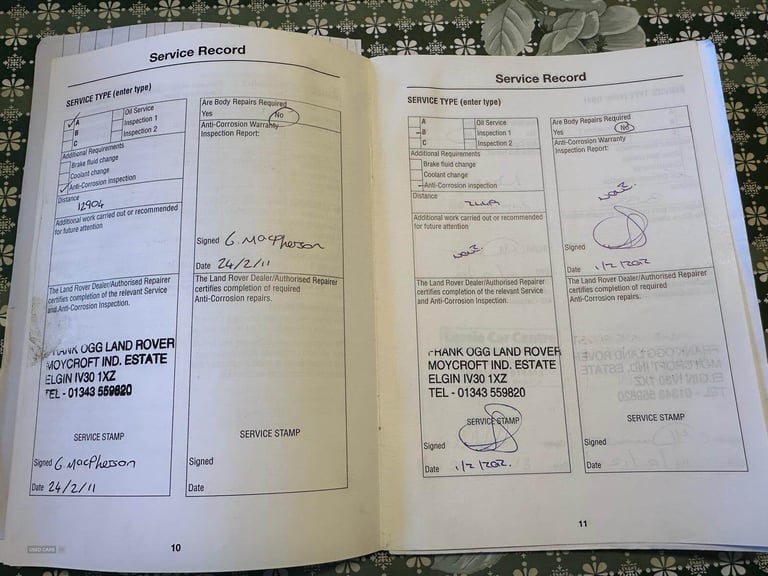 Service Record
SERVICE TYPE (enter type)
A
B
C
Oil Service
Inspection 1
Inspection 2
Additional Requirements
Brake fluid change
Coolant change
Anti-Corrosion inspection
Distance
12904
Additional work carried out or recommended
for future attention
The Land Rover Dealer/Authorised Repairer
certifies completion of the relevant Service
and Anti-Corrosion Inspection.
FRANK OGG LAND ROVER
MOYCROFT IND. ESTATE
ELGIN IV30 1XZ
TEL - 01343 559820
SERVICE STAMP
Signed G. MacPherson
Date 24/2/11
Are Body Repairs Required
Yes No
Anti-Corrosion Warranty
Inspection Report:
Signed G. MacPherson
Date 24/2/11
The Land Rover Dealer/Authorised Repairer
certifies completion of required
Anti-Corrosion repairs.
SERVICE STAMP
Signed
Date
10
Service Record
SERVICE TYPE (enter type)
A
B
C
Oil Service
Inspection 1
Inspection 2
Additional Requirements
Brake fluid change
Coolant change
Anti-Corrosion inspection
Distance
Additional work carried out or recommended
for future attention
The Land Rover Dealer/Authorised Repairer
certifies completion of the relevant Service
and Anti-Corrosion Inspection.
FRANK OGG LAND ROVER
MOYCROFT IND. ESTATE
ELGIN IV30 1XZ
TEL - 01343 559820
SERVICE STAMP
Signed
Date 1/2/2012.
Are Body Repairs Required
Yes No
Anti-Corrosion Warranty
Inspection Report:
Signed
Date 1/2/2012
The Land Rover Dealer/Authorised Repairer
certifies completion of required
Anti-Corrosion repairs.
SERVICE STAMP
Signed
Date
11
USED CARS